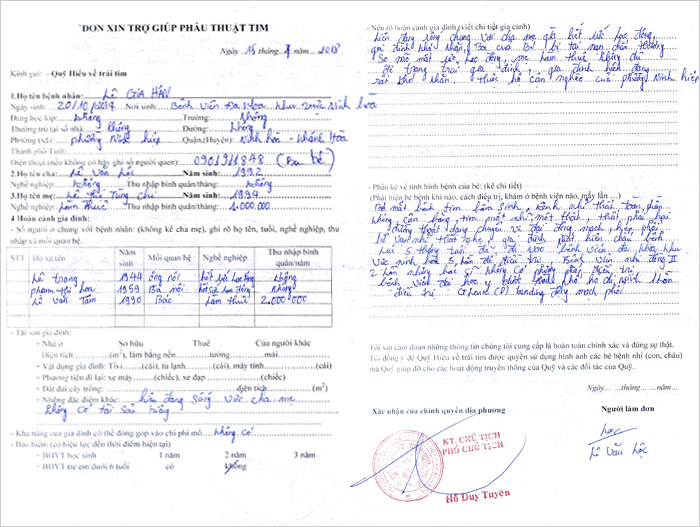 ĐƠN XIN TRỢ GIÚP PHẪU THUẬT TIM
Ngày 15 tháng 7 năm ... 2018
Kính gửi: - Quỹ Hiểu về trái tim
1.Họ tên bệnh nhân: LÊ GIA HÂN
Ngày sinh: 20/10/2017 Nơi sinh: Bệnh viện Đa khoa khu vực Ninh hoà
Đang học lớp: không Trường: không
Thường trú tại số nhà: không Đường: không
Phường (xã): phường Ninh hiệp Quận.(Huyện): Ninh hoà - Khánh Hòa
Thành phố/Tỉnh:
Điện thoại (nếu không có hãy ghi số người quen): 0901911848 (Ba bé)
2.Họ tên cha: Lê Văn Lộc Năm sinh: 1992
Nghề nghiệp: không Thu nhập bình quân/tháng: không
3.Họ tên mẹ: Năm sinh: 1994
Nghề nghiệp: Làm thuê Thu nhập bình quân/tháng: 1.000.000
4 Hoàn cảnh gia đình:
- Số người ở chung với bệnh nhân: (không kể cha mẹ), ghi rõ họ tên, tuổi, nghề nghiệp, thu
nhập và mối quan hệ.
STT Họ và tên Năm sinh Mối quan hệ Nghề nghiệp Thu nhập bình quân/năm
Lê trọng 1948 ông nội hết sức lao động không
phạm thị hoa 1959 Bà nội hết sức lao động không
Lê Văn Tâm 1990 Bác Làm thuê 2.000.000
- Tài sản gia đình:
• Nhà ở Sở hữu Thuê Của người khác
Diện tích:...(m2), làm bằng nền...tường...mái...
• Vật dụng gia đình: Tivi...(cái), tủ lạnh...(cái), máy tính...(cái)
• Phương tiện đi lại: xe máy...(chiếc), xe đạp...(chiếc)
• Đất đai cây trồng:...diện tích...(m2)
• Những đặc điểm khác: hiện đang sống với cha mẹ
không có tài sản riêng
- Khả năng của gia đình có thể đóng góp vào chi phí mổ...không có
- Bảo hiểm: (có hiệu lực đến thời điểm hiện tại)
• BHYT học sinh 1 năm 2 năm 3 năm
• BHYT trẻ em dưới 6 tuổi có không
- Nêu rõ hoàn cảnh gia đình (viết chi tiết gia cảnh)
hiện đang sống chung với cha mẹ già hết sức lao động,
gia đình khó khăn, Ba của Bé bị tai nạn
mẹ làm thuê không đủ
gia đình hiện đang
rất khó khăn. Thuộc hộ cận nghèo của phường Ninh hiệp
- Phần kể về tình hình bệnh của bé: (kể chi tiết)
(Phát hiện bệnh khi nào, cách điều trị, khám ở bệnh viện nào, mấy lần ...)
Bé mắc bệnh tim bẩm sinh, kênh nhĩ thất toàn phần
không cân bằng, tim một nhĩ một thất, thất phải hai
đường thoát dạng chuyển vị đại động mạch, hẹp phổi
hở van nhĩ thất nhẹ, gia đình phát hiện cháu bệnh
Lúc 5 tháng tuổi đã đi vào bệnh viện đa khoa khu
vực ninh hoà 5 lần để điều trị Bệnh viện nhi đồng II
2 lần nhưng bác sĩ không có phương pháp điều trị
bệnh viện đại học y dược thành phố hồ chí minh 1 lần
điều trị Glenn (P) banding động mạch phổi
Tôi xin cam đoan những thông tin chúng tôi cung cấp là hoàn toàn chính xác và đúng sự thật.
Tôi đồng ý để Quỹ Hiểu về trái tim được quyền sử dụng hình ảnh các bé bệnh nhi (con, cháu)
mà Quỹ giúp đỡ cho các hoạt động truyền thông của Quỹ và các đối tác của Quỹ.
Ngày... tháng ...năm...
Xác nhận của chính quyền địa phương
Người làm đơn
KT. CHỦ TỊCH
PHÓ CHỦ TỊCH
Lộc
Lê Văn Lộc
Hồ Duy Tuyên